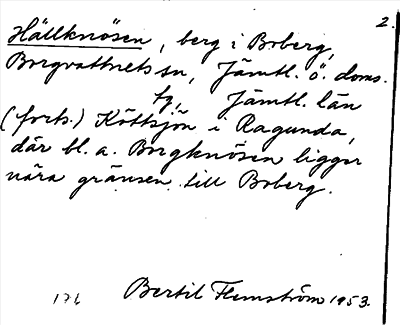 2.
Hällknösen, berg i Boberg,
Borgvattnets sn, Jämtl. ö. doms.
tg, Jämtl. län
(forts.) Köttsjön i Ragunda,
där bl. a. Borgknösen ligger
nära gränsen till Boberg.
176 Bertil Flemström 1953.